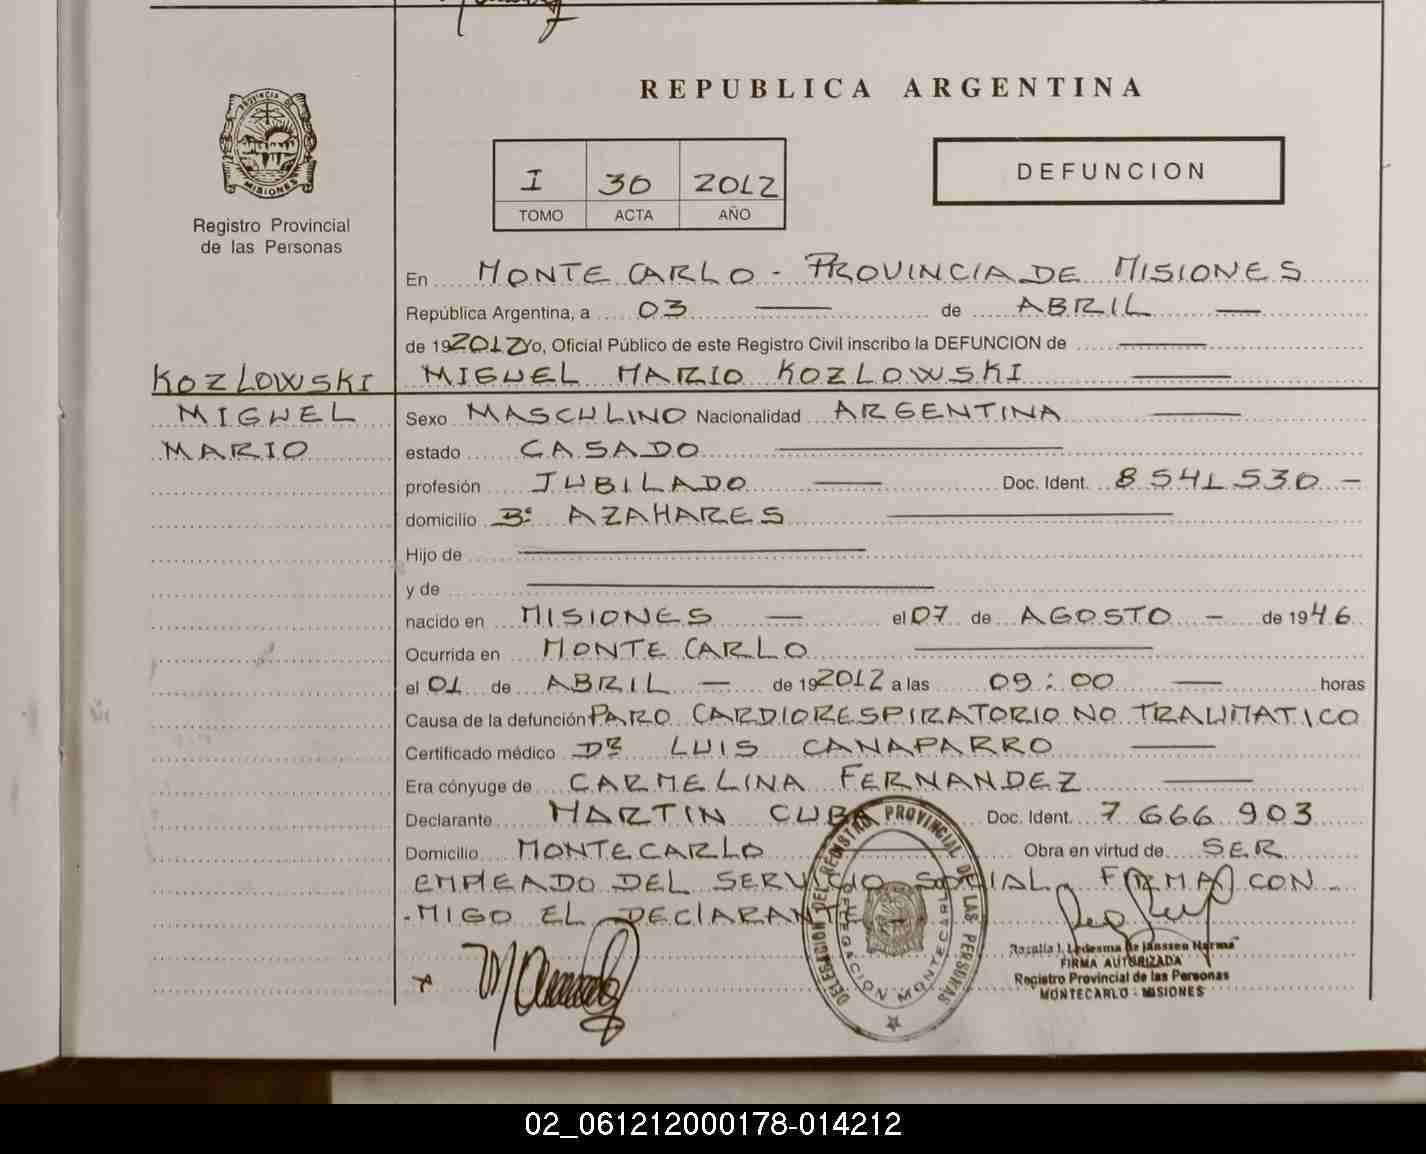 REPUBLICA ARGENTINA
PROVINCIA DE
MISIONES
Registro Provincial
de las Personas
I 30 2012
TOMO ACTA AÑO
DEFUNCION
En MONTE CARLO - PROVINCIA DE MISIONES
República Argentina, a 03 de ABRIL
de 192012 Yo, Oficial Público de este Registro Civil inscribo la DEFUNCION de
MIGUEL MARIO KOZLOWSKI
KOZLOWSKI
MIGUEL
MARIO
Sexo MASCULINO Nacionalidad ARGENTINA
estado CASADO
profesión JUBILADO Doc. Ident. 8541530 -
domicilio Bº AZAHARES
Hijo de
y de
nacido en MISIONES el 07 de AGOSTO - de 1946
Ocurrida en MONTE CARLO
el 01 de ABRIL de 192012 a las 09:00 horas
Causa de la defunción PARO CARDIORESPIRATORIO NO TRAUMATICO
Certificado médico Dr LUIS CANAPARRO
Era cónyuge de CARMELINA FERNANDEZ
Declarante MARTIN CUBA Doc. Ident. 7 666 903
Domicilio MONTECARLO Obra en virtud de SER
EMPLEADO DEL SERVICIO SOCIAL. FIRMA CON -
- MIGO EL DECLARANTE
DELEGACION DEL REGISTRO PROVINCIAL DE LAS PERSONAS
DELEGACION MONTECARLO
Rosalia I. Ledesma de Janssen Harms
FIRMA AUTORIZADA
Registro Provincial de las Personas
MONTECARLO - MISIONES
02_061212000178-014212